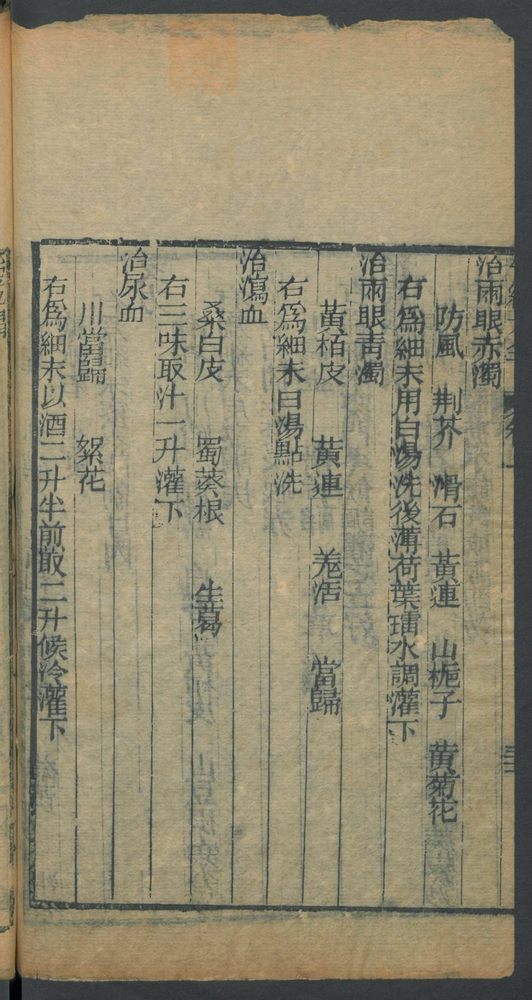 治兩眼赤濁
防風 荆芥 滑石 黃連 山梔子 黄菊花
右爲細末用白湯洗後薄荷葉擂水調灌下
治兩眼青濁
黃栢皮 黃連 羗活 當歸
右爲細末白湯點洗
治瀉血
桑白皮 蜀葵根 生葛
右三味取汁一升灌下
治尿血
川當歸 紅花
右爲細末以酒二升半煎取二升候冷灌下